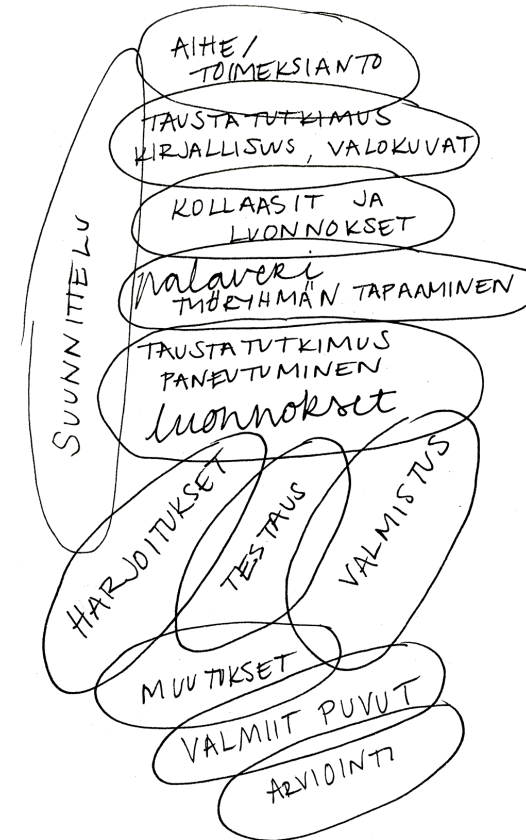 AIHE/
TOIMEKSIANTO
TAUSTATUTKIMUS
KIRJALLISUUS, VALOKUVAT
KOLLAASIT JA
LUONNOKSET
palaveri
TYÖRYHMÄN TAPAAMINEN
TAUSTATUTKIMUS
PANEUTUMINEN
luonnokset
SUUNNITTELU
HARJOITUKSET
TESTAUS
VALMISTUS
MUUTOKSET
VALMIIT PUVUT
ARVIOINTI